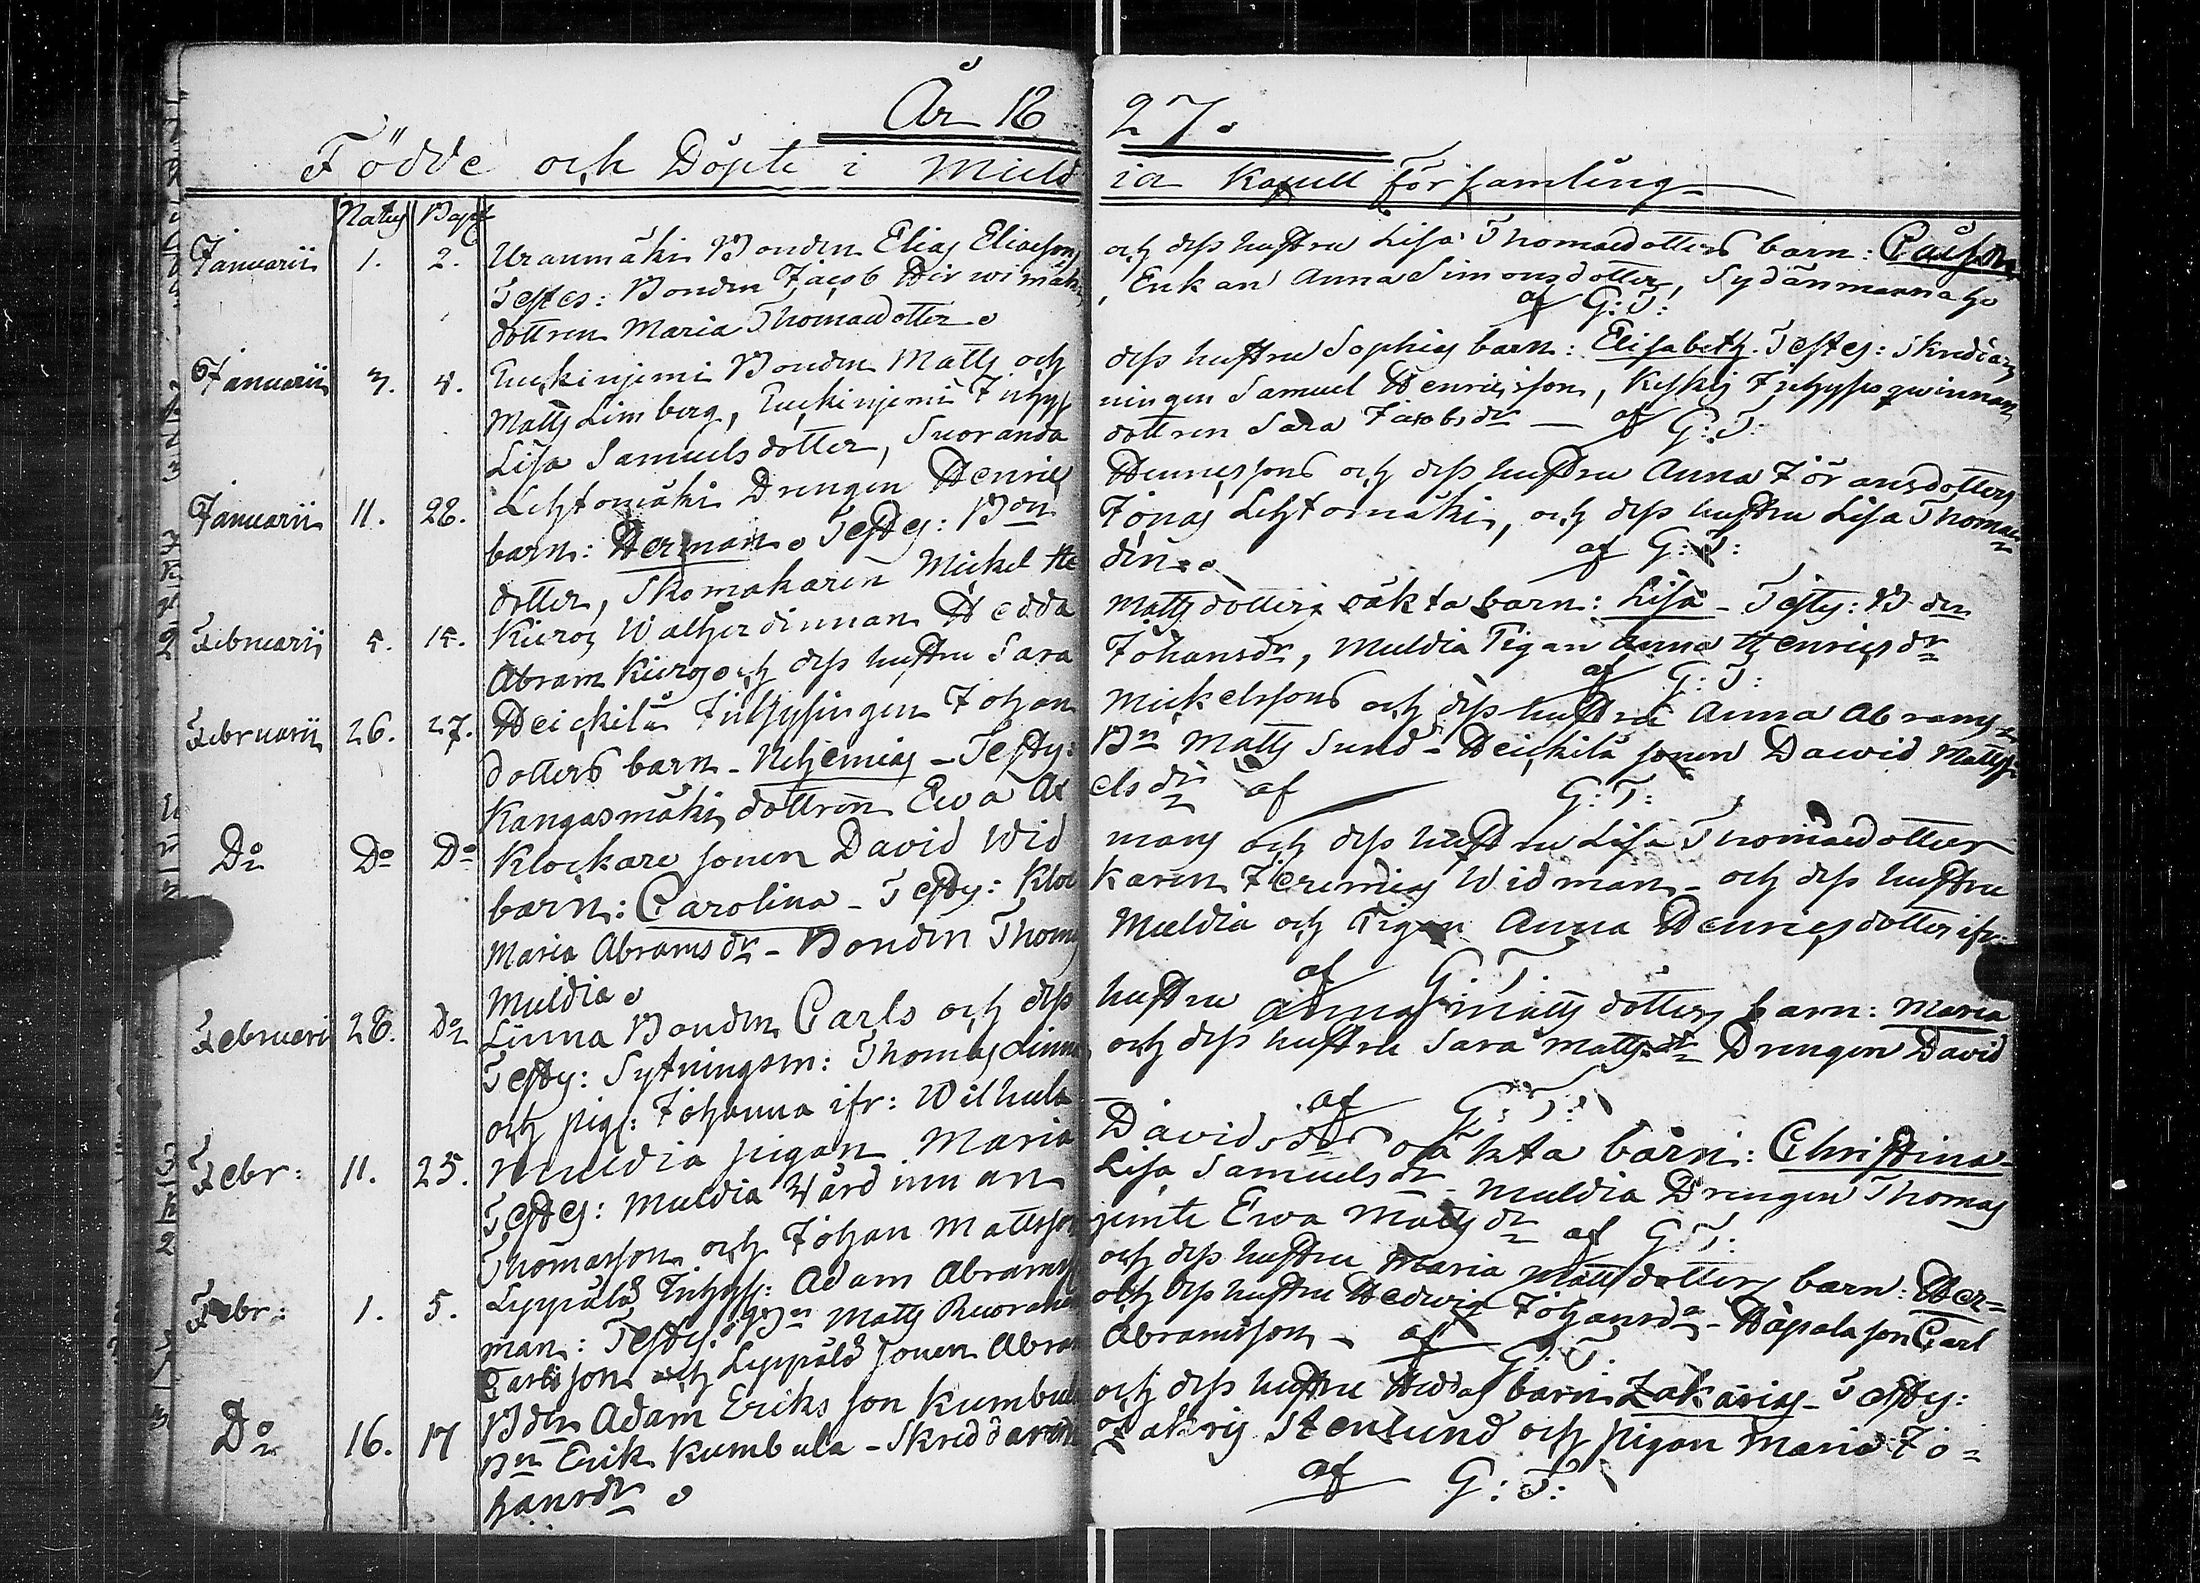 År 18 27.
Födde och Döpte i Muld ia Kapell församling
Natus Bapt
Januarii 1. 2. Uraumäki Bonden Elias Eliassons och dess hustru Lisa Thomasdotters barn:
Testes: Bonden Jacob Hirvimäki, Enkan Anna Simonsdotter, Sydänmaa
dottren Maria Thomasdotter. af G: T:
Januarii 3. 4. Bonden Matts och dess hustru Sophias barn: Elisabeth. Testes:
Matts Limberg, Samuel Henricsson, Keskis Inhysesqwinnan
Lisa Samuelsdotter, Suoranda dottren Sara Jacobsdr — af G: T:
Januarii 11. 28. Lehtomäki Drengen Henric Henricssons och dess hustru Anna Göransdotters
barn: Herman. Testes: Bdn Jonas Lehtomäki, och dess hustru Lisa Thomas
dotter, Skomakaren Mickel af G: T:
Februarii 5. 15. Kieroj Hedda Mattsdotters oäkta barn: Lisa - Testes: Bdn
Abram Kieroj och dess hustru Sara Johansdr, Muldia Pigan Anna Henricsdr
af G: T:
Februarii 26. 27. Heickilä Inhysingen Johan Mickelssons och dess hustru Anna Abrams
dotters barn - Nehemias - Testes: Bn Matts Sund - Heickilä sonen Dawid Matts
Kangasmäki dottren Ewa elsdr af G: T:
Do Do Do Klockare sonen David Wid mans och dess hustru Lisa Thomasdotters
barn: Carolina - Testes: Kloc karen Jeremias Widman - och dess hustru
Maria Abramsdr - Bonden Thomas Muldia och Pigan Anna Henricsdotter ifr:
Muldia. af G: T:
Februari 28. Do Linna Bonden Carls och dess hustru Anna Mattsdotters barn: Maria
Testes: Sytningsm: Thomas Linna och dess hustru Sara Mattsdr Drengen David
och pig: Johanna ifr: Wilhula af G: T:
Febr: 11. 25. Muldia pigan Maria Davidsdrs oäkta barn: Christina -
Testes: Muldia Värdinnan Lisa Samuelsdr - Muldia Drengen Thomas
Thomasson och Johan Mattsson jemte Ewa Mattsdr af G: T:
Febr: 1. 5. Leppälä Inhys: Adam Abrams och dess hustru Maria Mattsdotters barn: Her=
man: Testes: Bn Matts och dess hustru Hedwig Johansdr - Hapala son Carl
Carlsson och Leppälä sonen Abram Abramsson - af G: T.
Do 16. 17 Bdn Adam Eriksson Kumbula och dess hustru Heddas barn Zakarias - Testes:
Bn Erik Kumbula - Skreddaren Zakris Stenlund och pigan Maria Jo=
hansdr. af G: T: